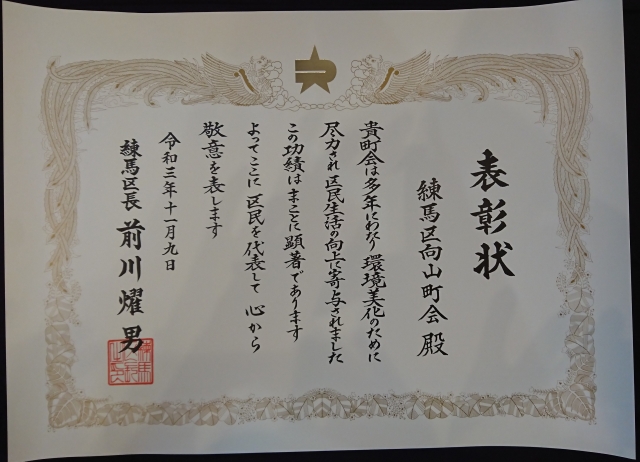 表彰状
練馬区向山町会 殿
貴町会は多年にわたり 環境美化のために
尽力され 区民生活の向上に寄与されました
この功績は まことに 顕著であります
よってここに 区民を 代表して 心から
敬意を表します
令和三年十一月九日
練馬区長 前川燿男